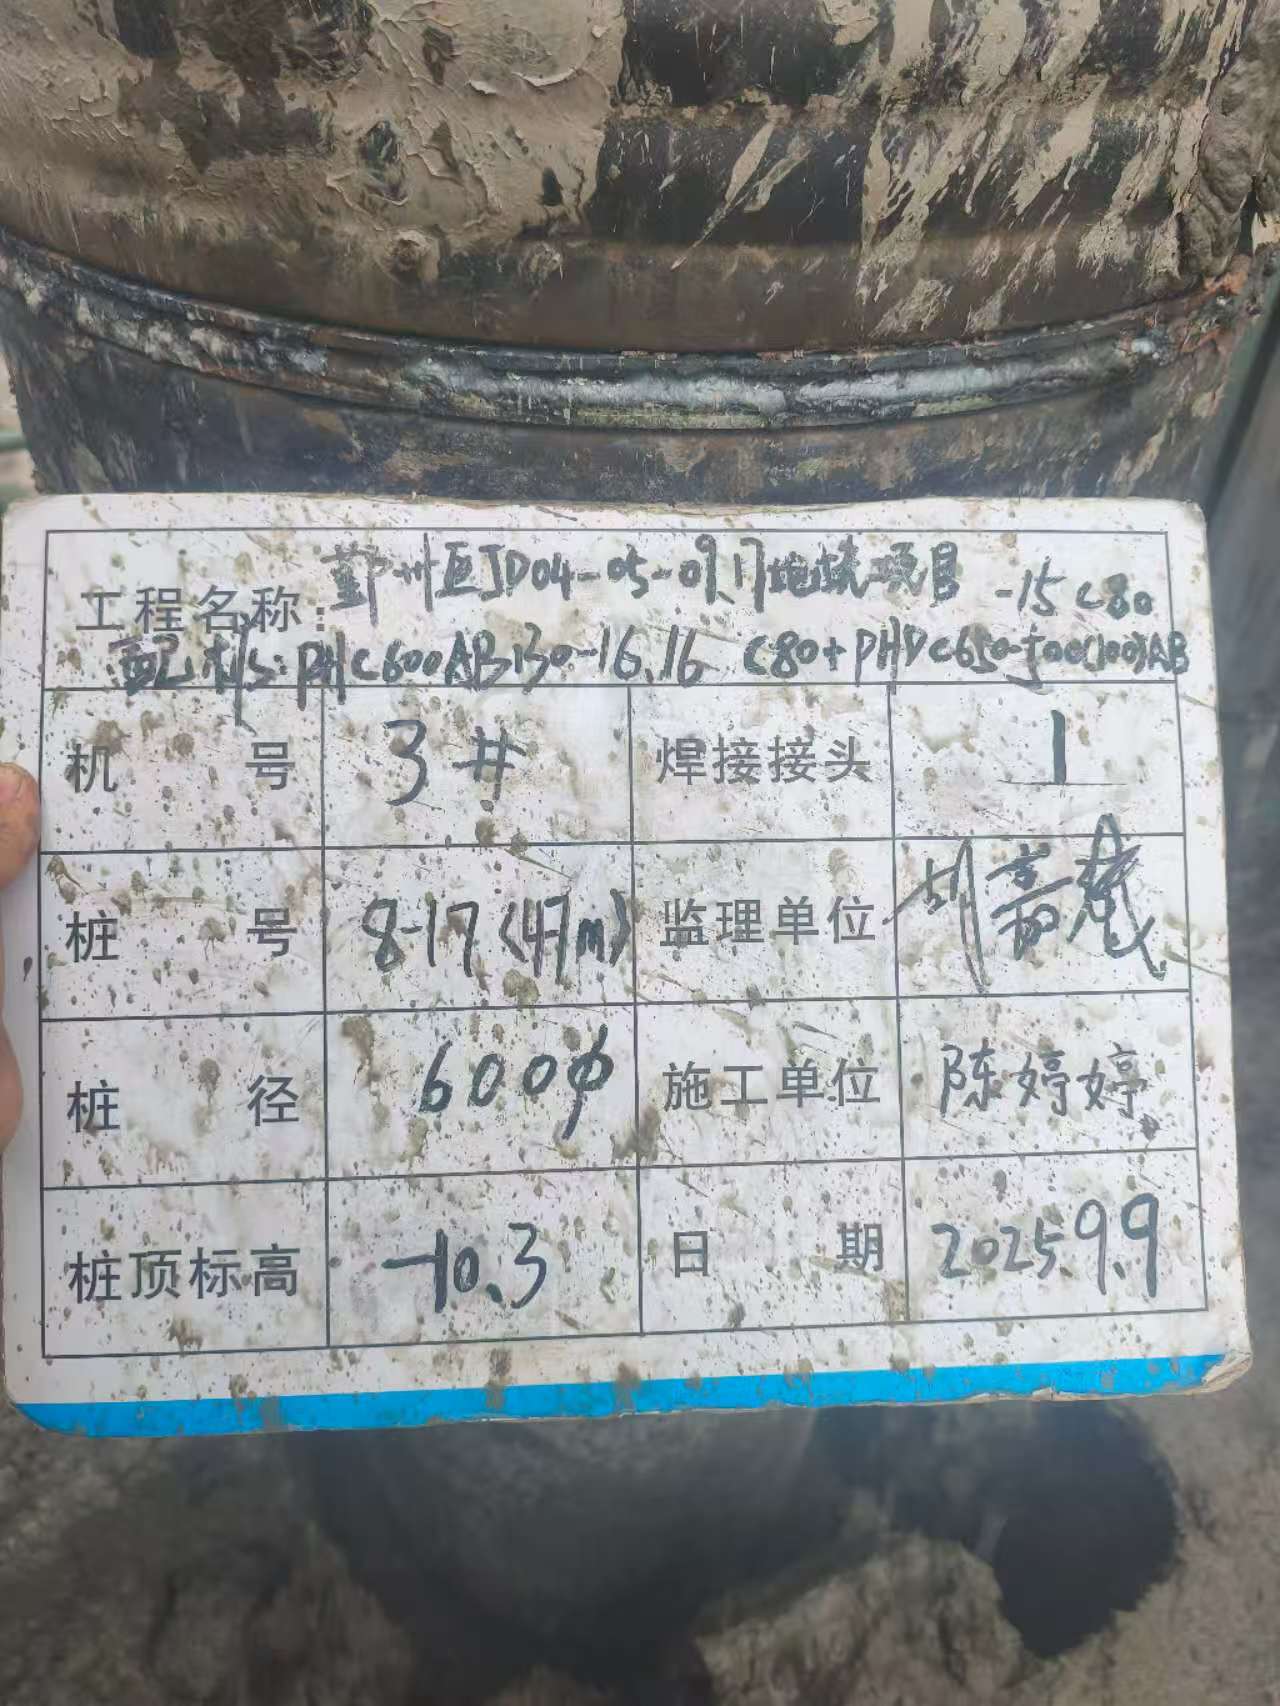 工程名称: 鄞州区JD04-05-09.17地块项目 -15 C80
配桩: PHC600AB130-16.16 C80+PHDC650-500(100)AB
机号 3# 焊接接头 1
桩号 8-17(47m) 监理单位 胡嘉
桩径 600φ 施工单位 陈婷婷
桩顶标高 -10.3 日期 2025.9.9